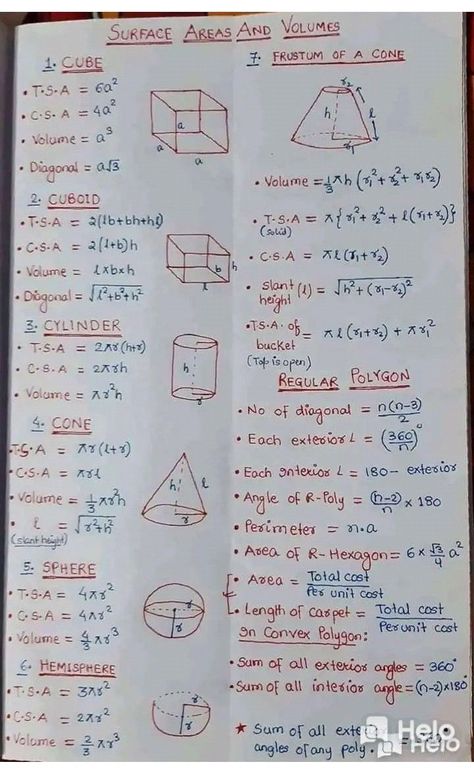 SURFACE AREAS AND VOLUMES
1. CUBE
• T.S.A = 6a²
• C.S.A = 4a²
• Volume = a³
• Diagonal = a√3
a
a
a
2. CUBOID
• T.S.A = 2(lb+bh+hl)
• C.S.A = 2(l+b)h
• Volume = l×b×h
• Diagonal = √l²+b²+h²
h
b
l
3. CYLINDER
• T.S.A = 2πr(h+r)
• C.S.A = 2πrh
• Volume = πr²h
h
r
4. CONE
• T.S.A = πr(l+r)
• C.S.A = πrl
• Volume = 1/3 πr²h
• l = √r²+h²
(slant height)
h
l
r
5. SPHERE
• T.S.A = 4πr²
• C.S.A = 4πr²
• Volume = 4/3 πr³
r
r
6. HEMISPHERE
• T.S.A = 3πr²
• C.S.A = 2πr²
• Volume = 2/3 πr³
r
r
7. FRUSTUM OF A CONE
r₂
h
l
r₁
• Volume = 1/3 πh (r₁²+r₂²+r₁r₂)
• T.S.A = π{r₁²+r₂²+l(r₁+r₂)}
(solid)
• C.S.A = πl(r₁+r₂)
• slant height (l) = √h²+(r₁-r₂)²
• T.S.A. of bucket = πl(r₁+r₂) + πr₁²
(Top is open)
REGULAR POLYGON
• No of diagonal = n(n-3)/2
• Each exterior ∠ = (360/n)°
• Each interior ∠ = 180 - exterior
• Angle of R-Poly = (n-2)/n × 180
• Perimeter = n.a
• Area of R-Hexagon = 6 × √3/4 a²
• Area = Total cost/Per unit cost
• Length of carpet = Total cost/Per unit cost
In Convex Polygon:
• Sum of all exterior angles = 360°
• Sum of all interior angle = (n-2)×180°
★ Sum of all
angles of any poly.
Helo
Helo